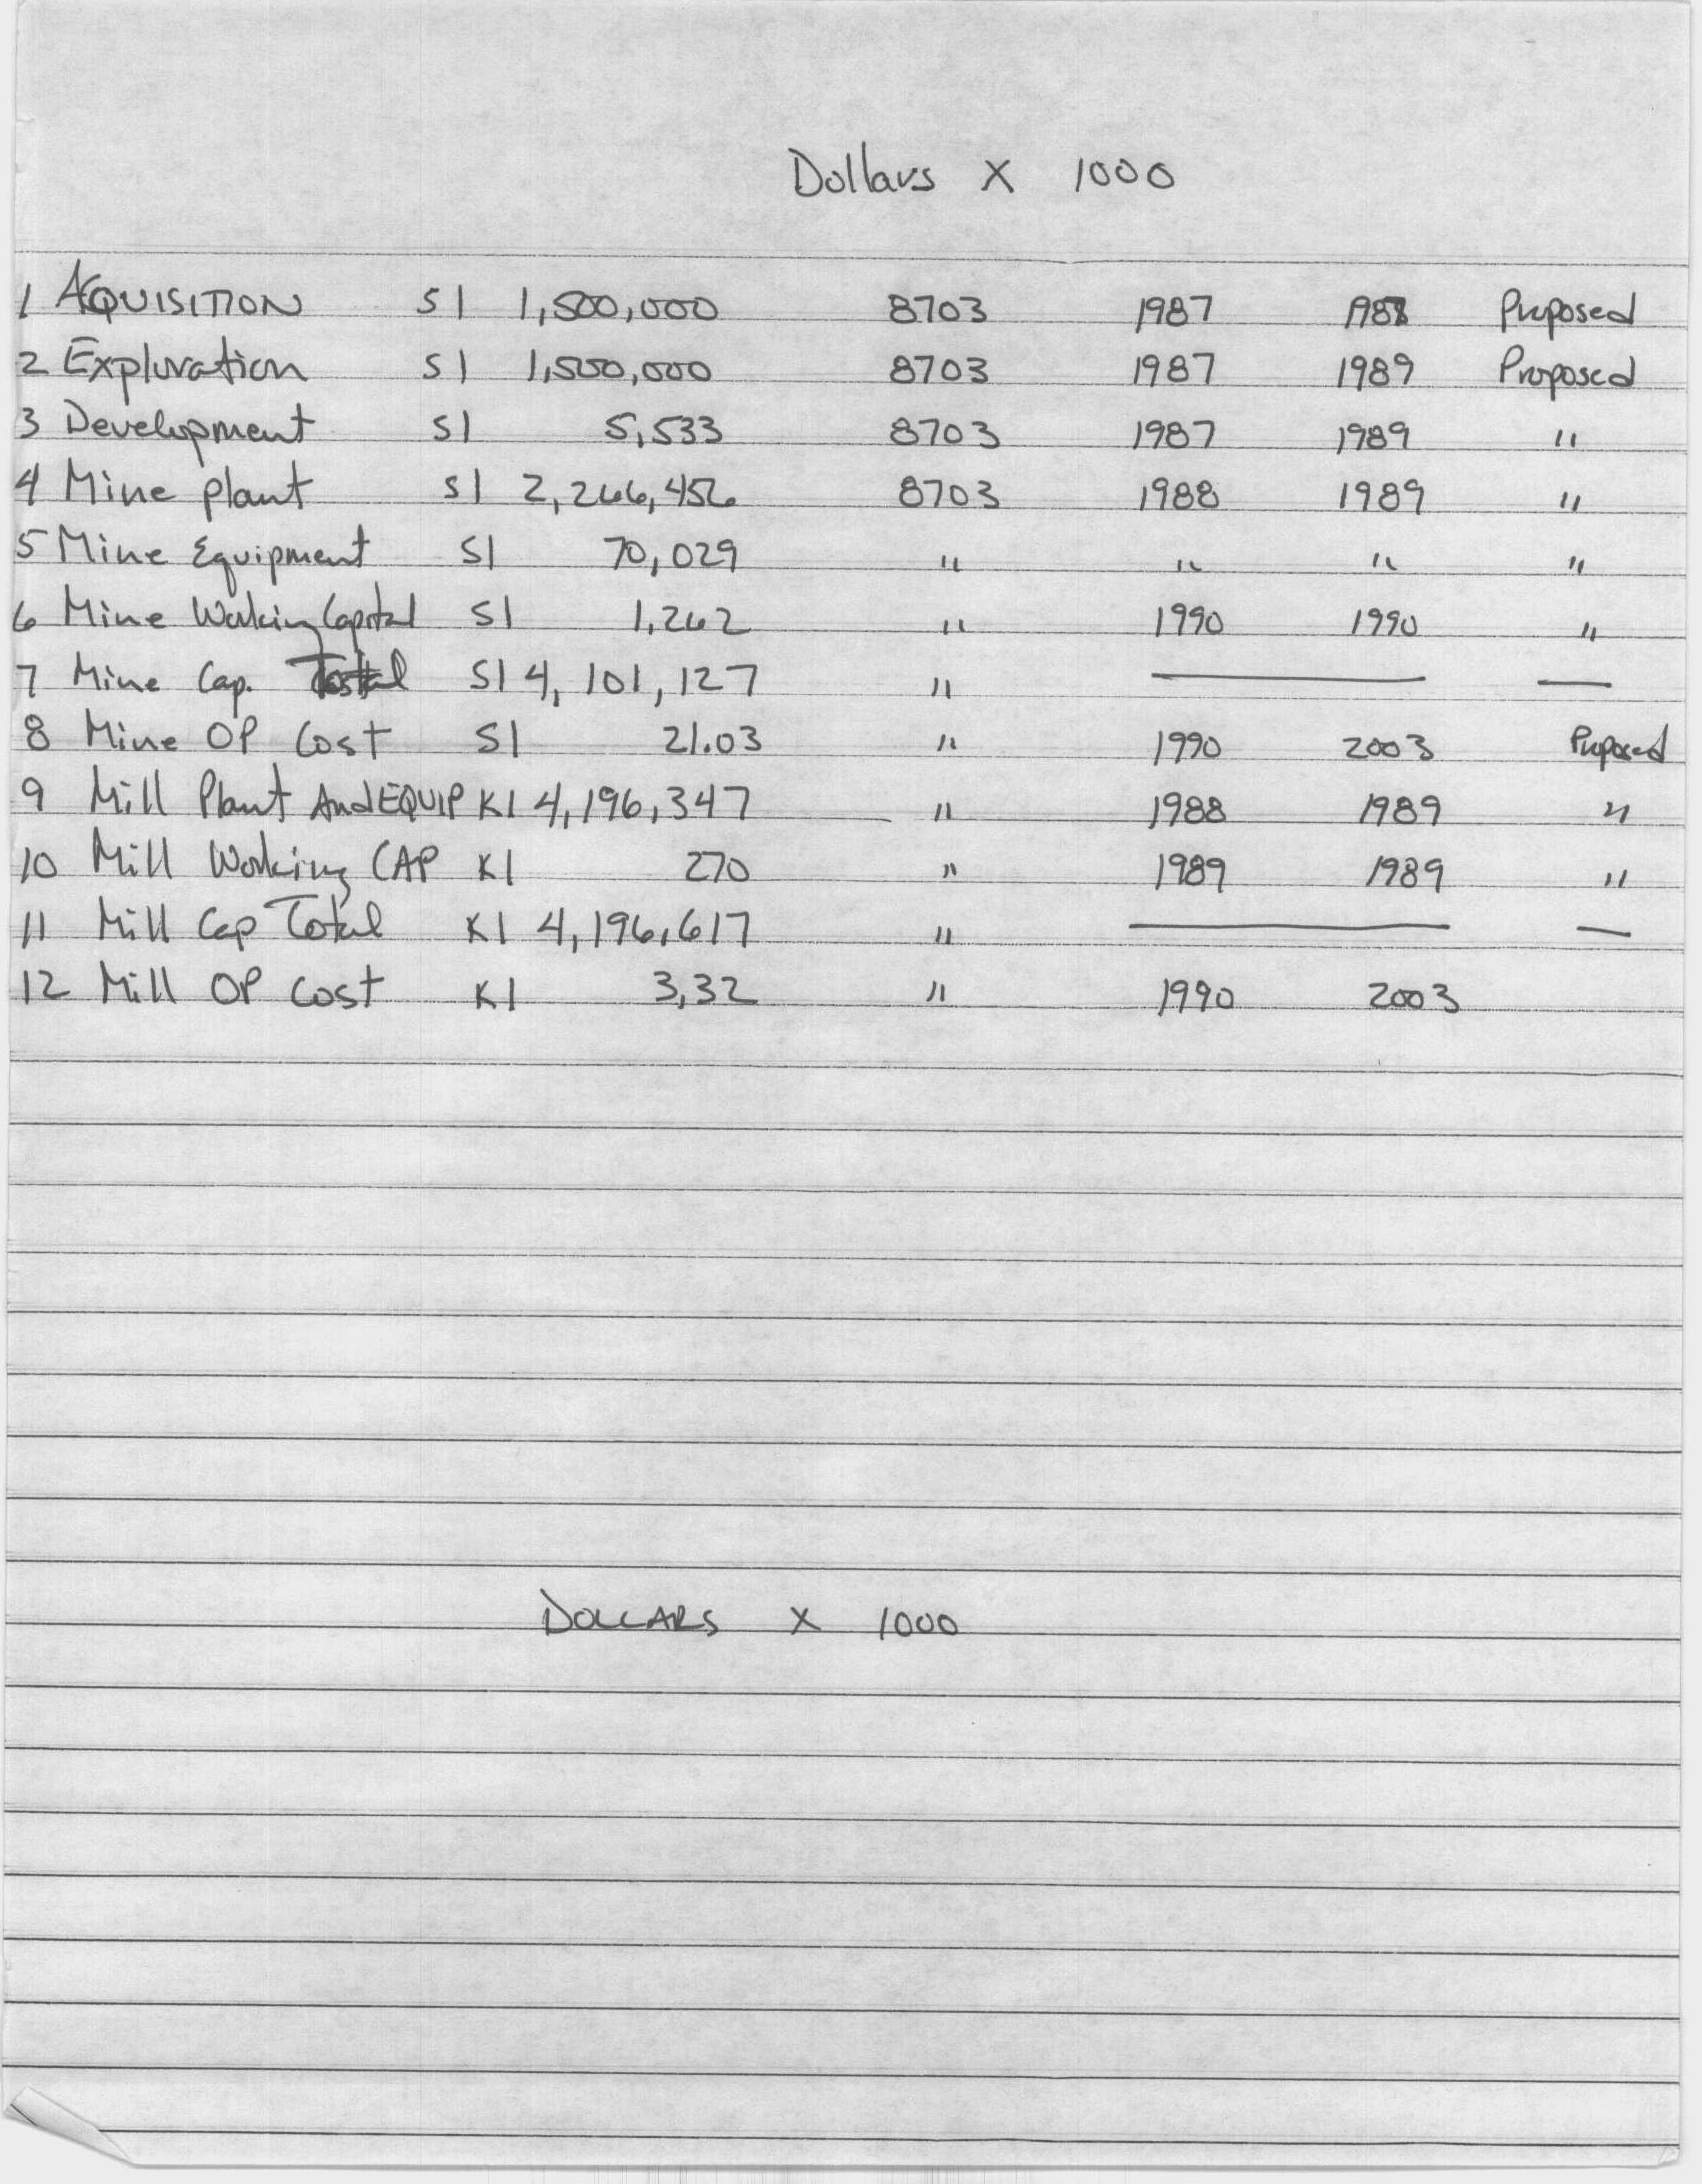 Dollars X 1000
1 ACQUISITION S1 1,500,000 8703 1987 1988 Proposed
2 Exploration S1 1,500,000 8703 1987 1989 Proposed
3 Development S1 5,533 8703 1987 1989 "
4 Mine plant S1 2,266,456 8703 1988 1989 "
5 Mine Equipment S1 70,029 " " " "
6 Mine Working Capital S1 1,262 " 1990 1990 "
7 Mine Cap. Total S1 4,101,127 " — —
8 Mine OP Cost S1 21.03 " 1990 2003 Proposed
9 Mill Plant And EQUIP K1 4,196,347 " 1988 1989 "
10 Mill Working CAP K1 270 " 1989 1989 "
11 Mill Cap Total K1 4,196,617 " — —
12 Mill OP Cost K1 3,32 " 1990 2003
DOLLARS X 1000